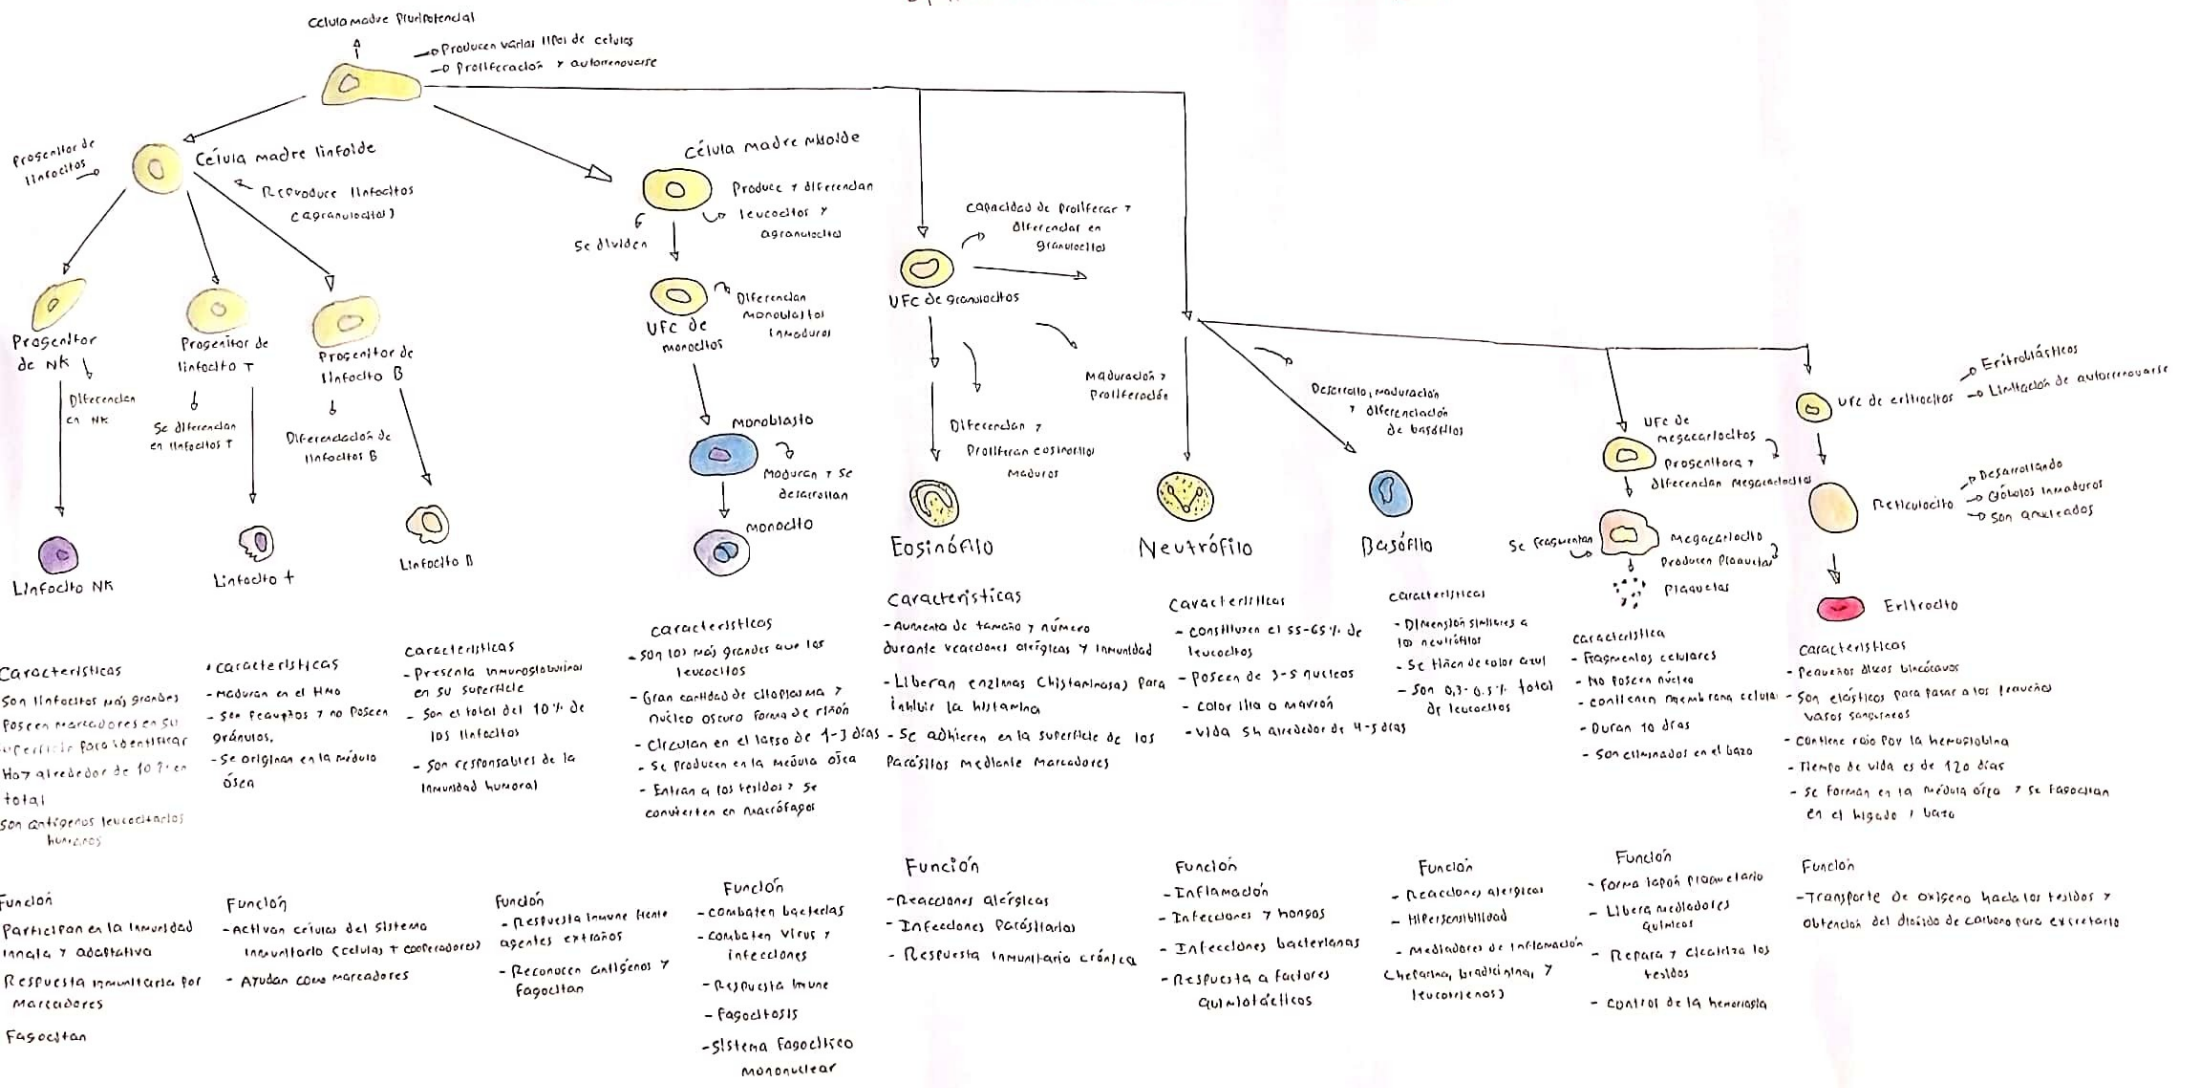 Célula madre Pluripotencial
Producen varios tipos de celulas
Proliferación y autorrenovarse
Progenitor de
linfocitos
Célula madre linfoide
Reproduce linfocitos
(agranulocitos)
Progenitor
de NK
Diferencian
en NK
Linfocito NK
Progenitor de
linfocito T
Se diferencian
en linfocitos T
Linfocito t
Progenitor de
linfocito B
Diferenciación de
linfocitos B
Linfocito B
Célula madre mieloide
Produce y diferencian
leucocitos y
agranulocitos
Se dividen
UFC de
monocitos
Diferencian
monoblastos
inmaduros
Monoblasto
Maduran y se
desarrollan
monocito
Capacidad de proliferar y
diferenciar en
granulocitos
UFC de granulocitos
Diferencian y
Proliferan eosinofilos
maduros
Eosinófilo
Maduración y
proliferación
Neutrófilo
Desarrollo, maduración
y diferenciación
de basófilos
Basófilo
UFC de
megacariocitos
Progenitora y
diferencian megacariocitos
Se fragmentan
Megacariocito
Producen plaquetas
Plaquetas
UFC de eritrocitos
Eritroblásticos
Limitación de autorrenovarse
Reticulocito
Desarrollando
Glóbulos inmaduros
Son anucleados
Eritrocito
Características
Son linfocitos más grandes
Poseen marcadores en su
superficie para identificar
Hay alrededor de 10% en
total
Son antígenos leucocitarios
humanos
Función
Participan en la inmunidad
innata y adaptativa
Respuesta inmunitaria por
marcadores
Fagocitan
características
- Maduran en el timo
- Son pequeños y no poseen
gránulos,
- Se originan en la médula
ósea
Función
- Activan células del sistema
inmunitario (celulas t cooperadores)
- Ayudan como marcadores
características
- Presenta inmunoglobulinas
en su superficie
- Son el total del 10% de
los linfocitos
- Son responsables de la
inmunidad humoral
Función
- Respuesta inmune frente
agentes extraños
- Reconocen antígenos y
fagocitan
características
- Son los más grandes que los
leucocitos
- Gran cantidad de citoplasma y
nucleo oscuro forma de riñón
- Circulan en el lapso de 1-3 días
- Se producen en la médula ósea
- Entran a los tejidos y se
convierten en macrófagos
Función
- combaten bacterias
- Combaten virus y
infecciones
- Respuesta imune
- Fagocitosis
- Sistema fagocítico
mononuclear
Características
- Aumenta de tamaño y número
durante reacciones alérgicas y inmunidad
- Liberan enzimas (histaminasa) para
inhibir la histamina
- Se adhieren en la superficie de los
parásitos mediante marcadores
Función
- Reacciones alérgicas
- Infecciones parásitarias
- Respuesta inmunitaria crónica
Características
- Constituyen el 55-65% de
leucocitos
- Poseen de 3-5 nucleos
- color lila o marrón
- vida 5h alrededor de 4-5 días
Función
- Inflamación
- Infecciones y hongos
- Infecciones bacterianas
- Respuesta a factores
quimiotácticos
Características
- Dimensión similares a
los neutrófilos
- Se tiñen de color azul
- Son 0,3-0.5% total
de leucocitos
Función
- Reacciones alergicas
- Hipersensibilidad
- Mediadores de inflamación
(heparina, bradicinina, y
leucotrienos)
característica
- Fragmentos celulares
- No poseen núcleo
- contienen membrana celular
- Duran 10 días
- Son eliminados en el bazo
Función
- Forma tapón plaquetario
- Libera mediadores
químicos
- Repara y cicatriza los
tejidos
- Control de la hemostasia
Características
- Pequeños discos bicócavos
- Son elásticos para pasar a los pequeños
vasos sanguíneos
- Contiene rojo por la hemoglobina
- Tiempo de vida es de 120 días
- Se forman en la médula ósea y se fagocitan
en el hígado y bazo
Función
- Transporte de oxígeno hacia los tejidos y
obtención del dióxido de carbono para excretarlo